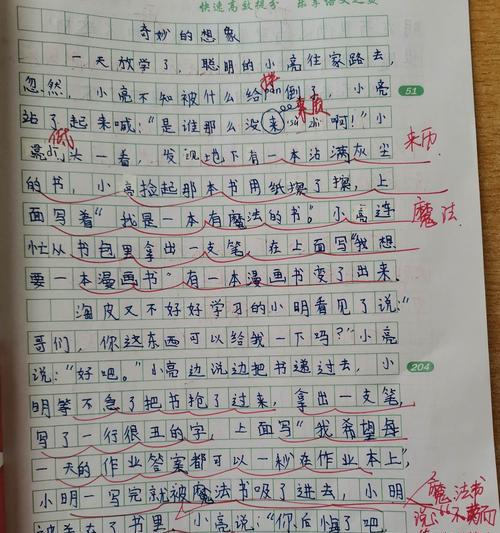 快速高效提分 乐享语文之美
奇妙的想象
一天放学了，聪明的小亮往家路去，
忽然，小亮不知被什么给pan倒了，小亮
站了起来喊："是谁那么没来 啊！"小
亮 头一看，发现地下有一本沾满灰尘
的书，小亮捡起那本书用纸擦了擦，上
面写着"我是一本有魔法的书"。小亮连
忙从书包里拿出一支笔，在上面写"我想
要一本漫画书"有一本漫画书变了出来。
淘皮又不好好学习的小明看见了说："
哥们，你这东西可以给我一下吗？"小亮
说："好吧。"小亮边说边把书递过去，小
明等不急了把书抢了过来，拿出一支笔，
写了一行很丑的字，上面写"我希望每
一天的作业答案都可以一秒在作业本上"，
小明一写完就被魔法书吸了进去，小明
被关在了书里，小亮说："你后悔了吧
绊
素质
低
来历
魔法
魔法书
说："不劳而
51
204